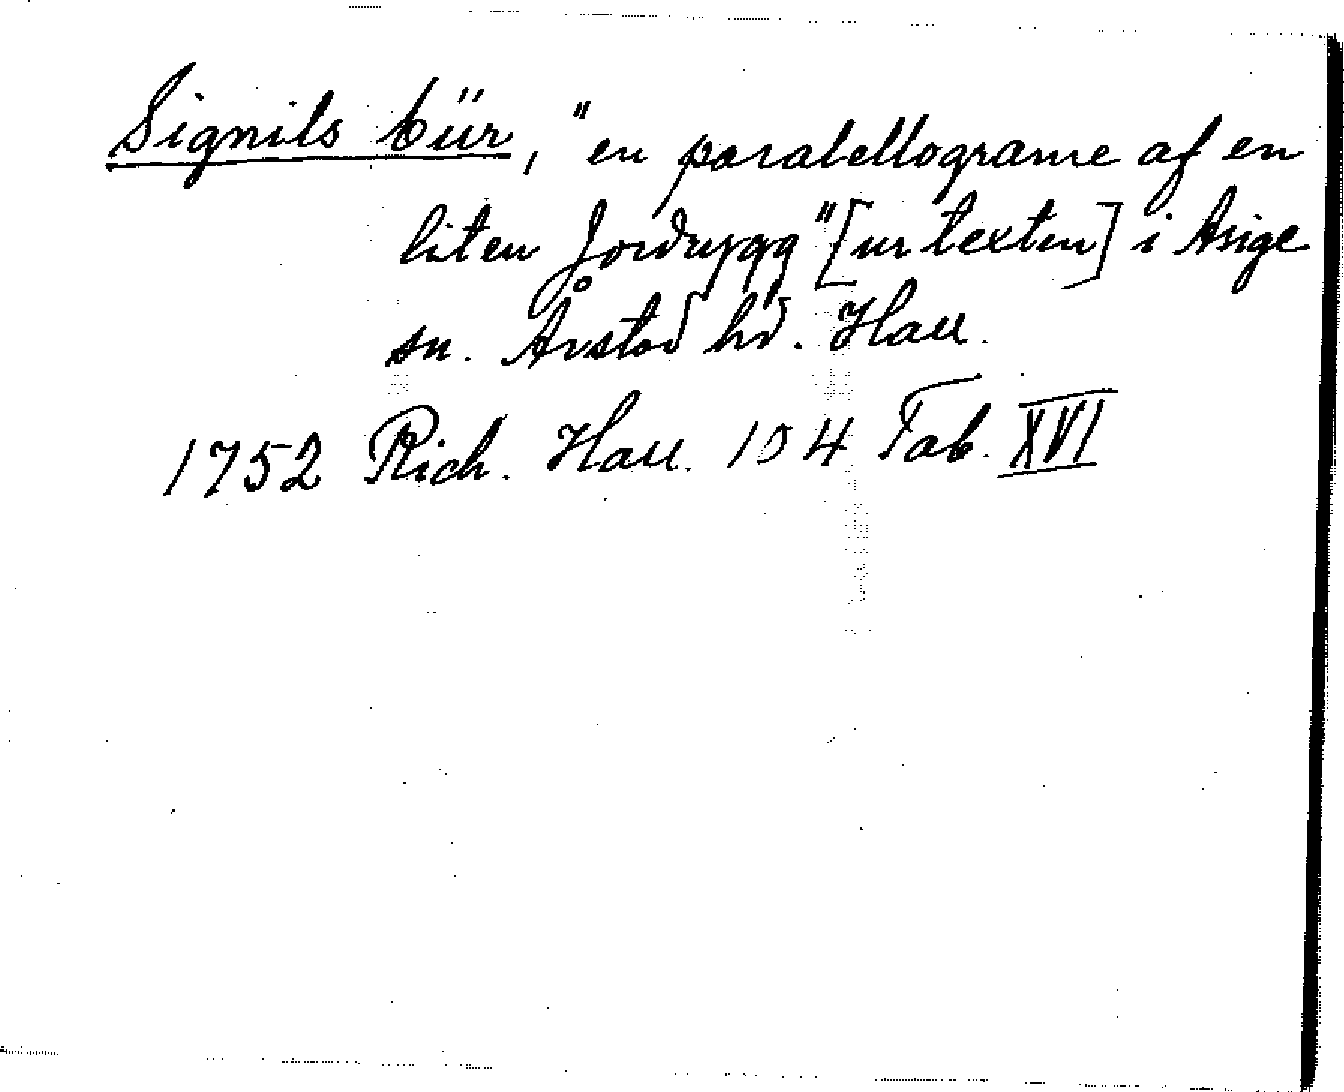 Signils bür, "en paralellograme af en
liten Jordrygg" [ur texten] i Asige
sn. Årstad hd. Hall.
1752 Rich. Hall. 104 Tab. XVI